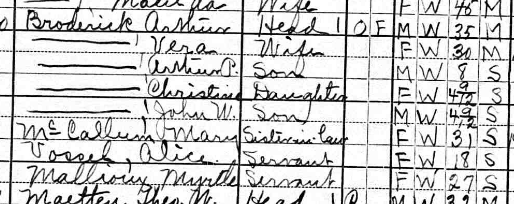 Wife F W 45 M
Broderick Arthur Head 1 O F M W 35 M
——— Vera Wife F W 30 M
——— Arthur P. Son M W 8 S
——— Christine Daughter F W 4 9/12 S
——— John W. Son M W 4 9/12 S
McCallum, Mary Sister in law F W 31 S
Vossel, Alice Servant F W 18 S
Mallioux, Myrtle Servant F W 27 S
Head 1 M W 32 M